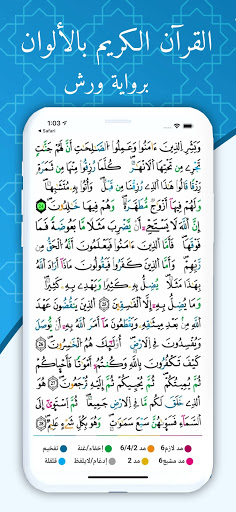 القرآن الكريم بالألوان
برواية ورش
1:03
Safari
وَبَشِّرِ الذِينَ ءَامَنُوا وَعَمِلُوا الصَّٰلِحَٰتِ أَنَّ لَهُمْ جَنَّٰتٖ
تَجْرِے مِن تَحْتِهَا اَلَانْهَٰرُ كُلَّمَا رُزِقُوا مِنْهَا مِن ثَمَرَةٖ
رِّزْقاٗ قَالُوا هَٰذَا اَلذِے رُزِقْنَا مِن قَبْلُ وَأُتُوا بِهِۦ مُتَشَٰبِهاٗ
وَلَهُمْ فِيهَا أَزْوَٰجٞ مُّطَهَّرَةٞ وَهُمْ فِيهَا خَٰلِدُونَ
إِنَّ اَللَّهَ لَا يَسْتَحْيِۦ أَنْ يَّضْرِبَ مَثَلاٗ مَّا بَعُوضَةٗ فَمَا
فَوْقَهَا فَأَمَّا اَلذِينَ ءَامَنُوا فَيَعْلَمُونَ أَنَّهُ اُلْحَقُّ مِن
رَّبِّهِمْ وَأَمَّا اَلذِينَ كَفَرُوا فَيَقُولُونَ مَاذَا أَرَادَ اَللَّهُ
بِهَٰذَا مَثَلاٗ يُضِلُّ بِهِۦ كَثِيراٗ وَيَهْدِے بِهِۦ كَثِيراٗ
وَمَا يُضِلُّ بِهِۦ إِلَّا اَلْفَٰسِقِينَ اَلذِينَ يَنقُضُونَ عَهْدَ
اَللَّهِ مِنۢ بَعْدِ مِيثَٰقِهِۦ وَيَقْطَعُونَ مَا أَمَرَ اَللَّهُ بِهِۦ أَنْ يُّوصَلَ
وَيُفْسِدُونَ فِے اِلَارْضِ أُوْلَٰئِكَ هُمُ اُلْخَٰسِرُونَ
كَيْفَ تَكْفُرُونَ بِاللَّهِ وَكُنتُمْ أَمْوَٰتاٗ فَأَحْيَٰكُمْ
ثُمَّ يُمِيتُكُمْ ثُمَّ يُحْيِيكُمْ ثُمَّ إِلَيْهِ تُرْجَعُونَ
هُوَ اَلذِے خَلَقَ لَكُم مَّا فِے اِلَارْضِ جَمِيعاٗ ثُمَّ اَسْتَوَىٰ إِلَى
اَلسَّمَاءِ فَسَوَّىٰهُنَّ سَبْعَ سَمَٰوَٰتٖ وَهُوَ بِكُلِّ شَےْءٍ عَلِيمٞ
مد لازم6 مد 6/4/2 إخفاء/غنة تفخيم
مد مشبع6 مد 2 إدغام/لايلفظ قلقلة